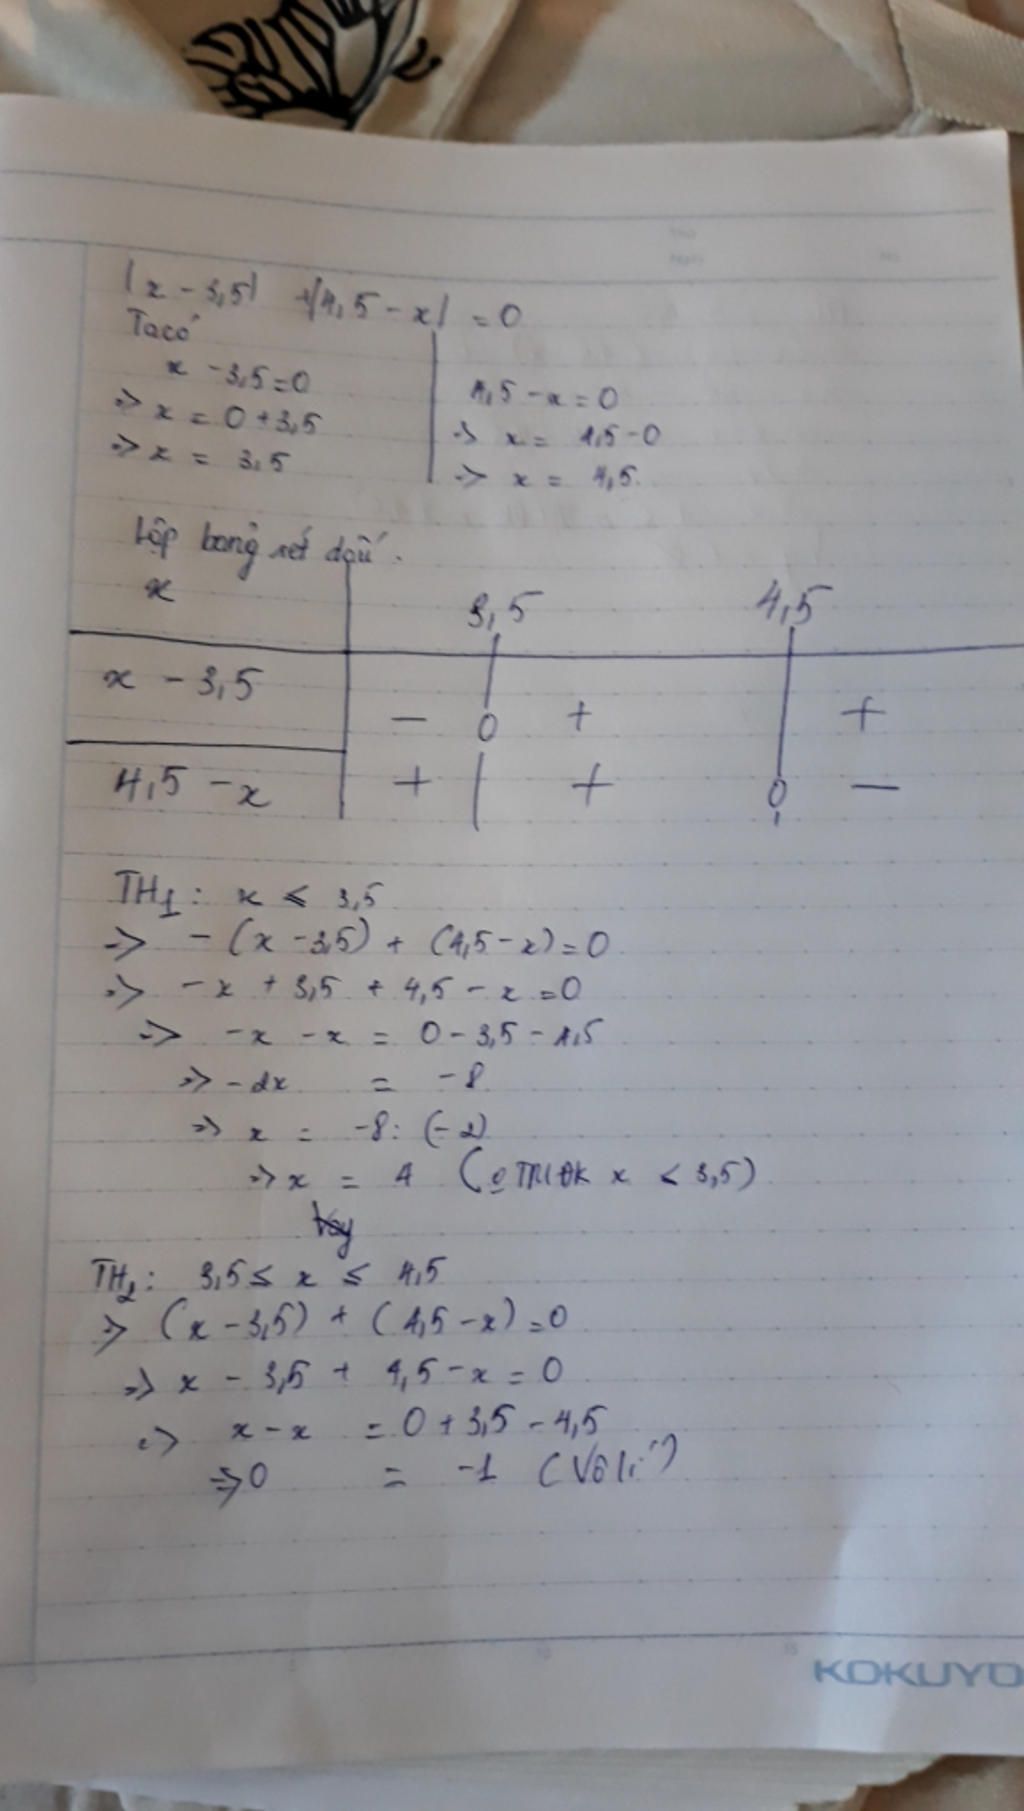 |x - 3,5| + |4,5 - x| = 0
Ta có
x - 3,5 = 0
=> x = 0 + 3,5
=> x = 3,5
4,5 - x = 0
=> x = 4,5 - 0
=> x = 4,5.
Lập bảng xét dấu.
x 3,5 4,5
x - 3,5 - 0 + +
4,5 - x + + 0 -
TH1: x ≤ 3,5
=> - (x - 3,5) + (4,5 - x) = 0
=> - x + 3,5 + 4,5 - x = 0
=> - x - x = 0 - 3,5 - 4,5
=> - 2x = - 8
=> x = -8 : (- 2)
=> x = 4 (0 TM ĐK x < 3,5)
TH2: 3,5 ≤ x ≤ 4,5
=> (x - 3,5) + (4,5 - x) = 0
=> x - 3,5 + 4,5 - x = 0
=> x - x = 0 + 3,5 - 4,5
=> 0 = -1 (Vô lí)
KOKUYO